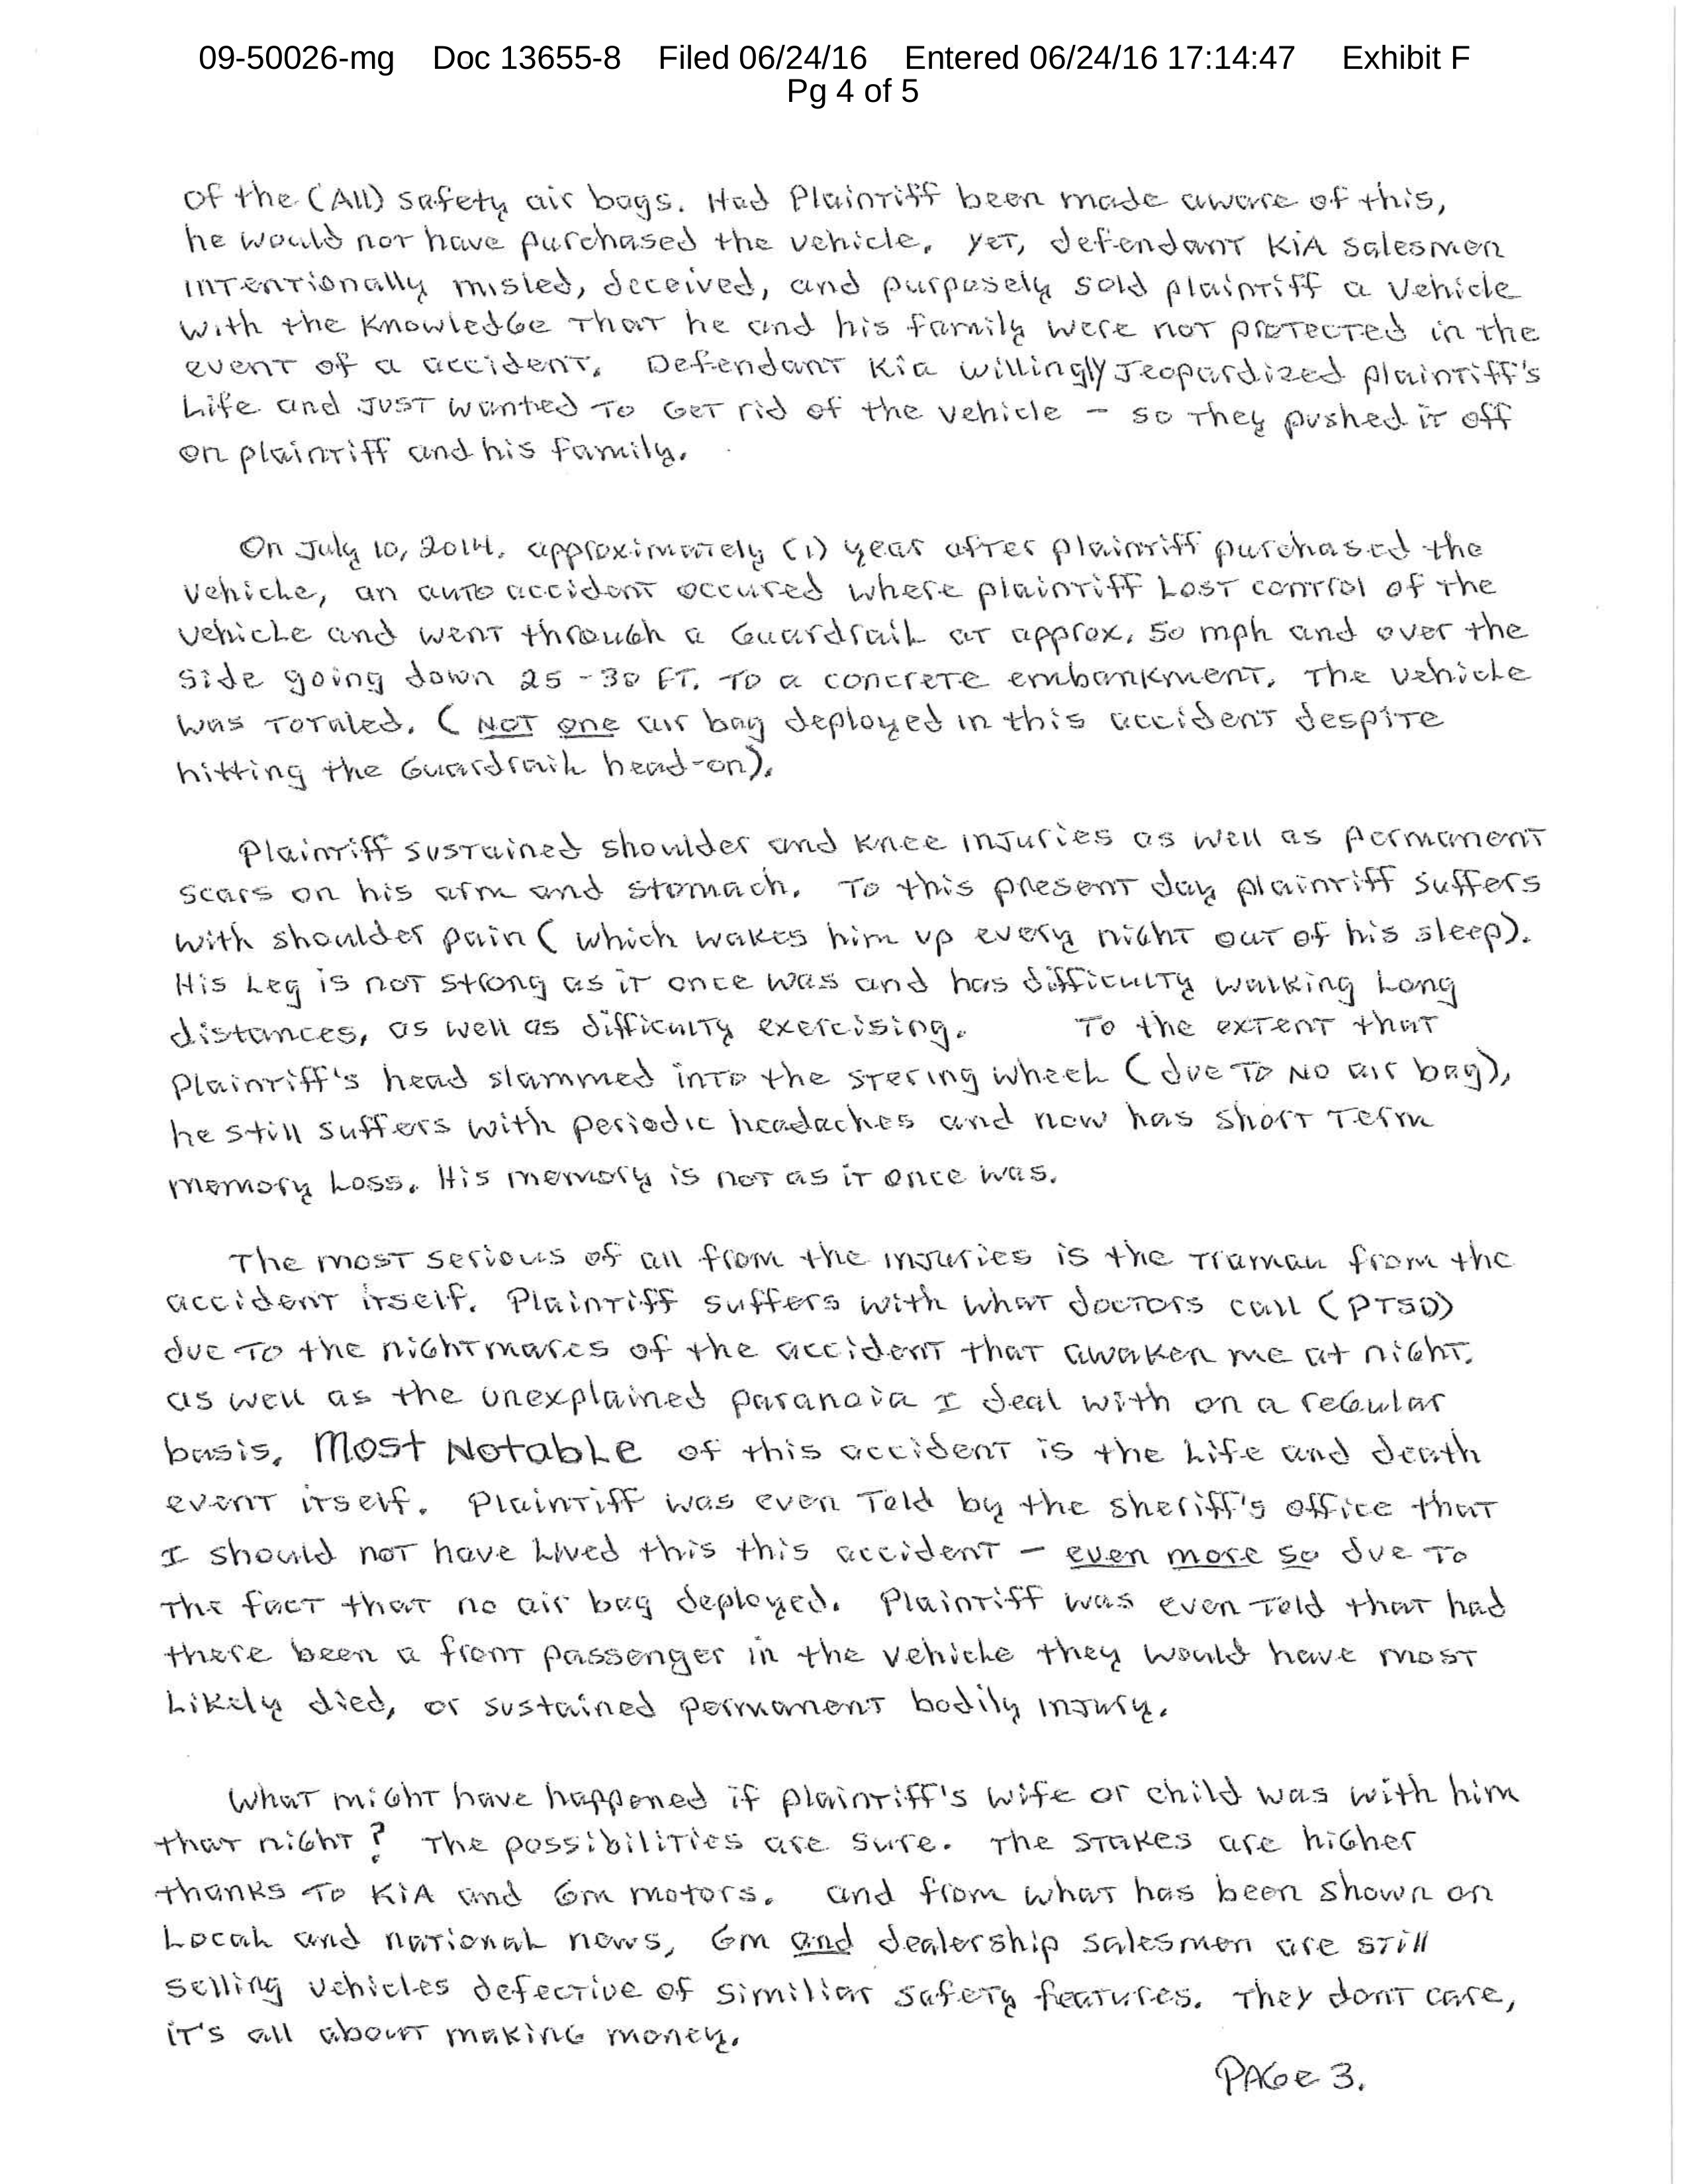 09-50026-mg Doc 13655-8 Filed 06/24/16 Entered 06/24/16 17:14:47 Exhibit F
Pg 4 of 5
of the (All) safety air bags. Had Plaintiff been made aware of this,
he would not have purchased the vehicle. Yet, defendant KiA salesmen
intentionally misled, deceived, and purposely sold plaintiff a vehicle
with the knowledge that he and his family were not protected in the
event of a accident. Defendant Kia willingly jeopardized plaintiff's
Life and just wanted to get rid of the vehicle - so they pushed it off
on plaintiff and his family.
On July 10, 2014, approximately (1) year after plaintiff purchased the
vehicle, an auto accident occured where plaintiff lost control of the
vehicle and went through a Guardrail at approx. 50 mph and over the
side going down 25-30 FT. to a concrete embankment. The vehicle
was totaled. (NOT one air bag deployed in this accident despite
hitting the Guardrail head-on).
Plaintiff sustained shoulder and knee injuries as well as permanent
scars on his arm and stomach. To this present day plaintiff suffers
with shoulder pain (which wakes him up every night out of his sleep).
His Leg is not strong as it once was and has difficulty walking long
distances, as well as difficulty exercising. To the extent that
Plaintiff's head slammed into the stering wheel (due to NO air bag),
he still suffers with periodic headaches and now has short term
memory loss. His memory is not as it once was.
The most serious of all from the injuries is the tramau from the
accident itself. Plaintiff suffers with what doctors call (PTSD)
due to the nightmares of the accident that awaken me at night.
as well as the unexplained paranoia I deal with on a regular
basis. Most Notable of this accident is the life and death
event itself. Plaintiff was even told by the sheriff's office that
I should not have lived this this accident - even more so due to
the fact that no air bag deployed. Plaintiff was even told that had
there been a front passenger in the vehicle they would have most
likely died, or sustained permanent bodily injury.
What might have happened if plaintiff's wife or child was with him
that night? The possibilities are sure. The stakes are higher
thanks to KiA and Gm motors. and from what has been shown on
Local and national news, Gm and dealership salesmen are still
selling vehicles defective of similiar safety features. They dont care,
it's all about making money.
PAGe 3.